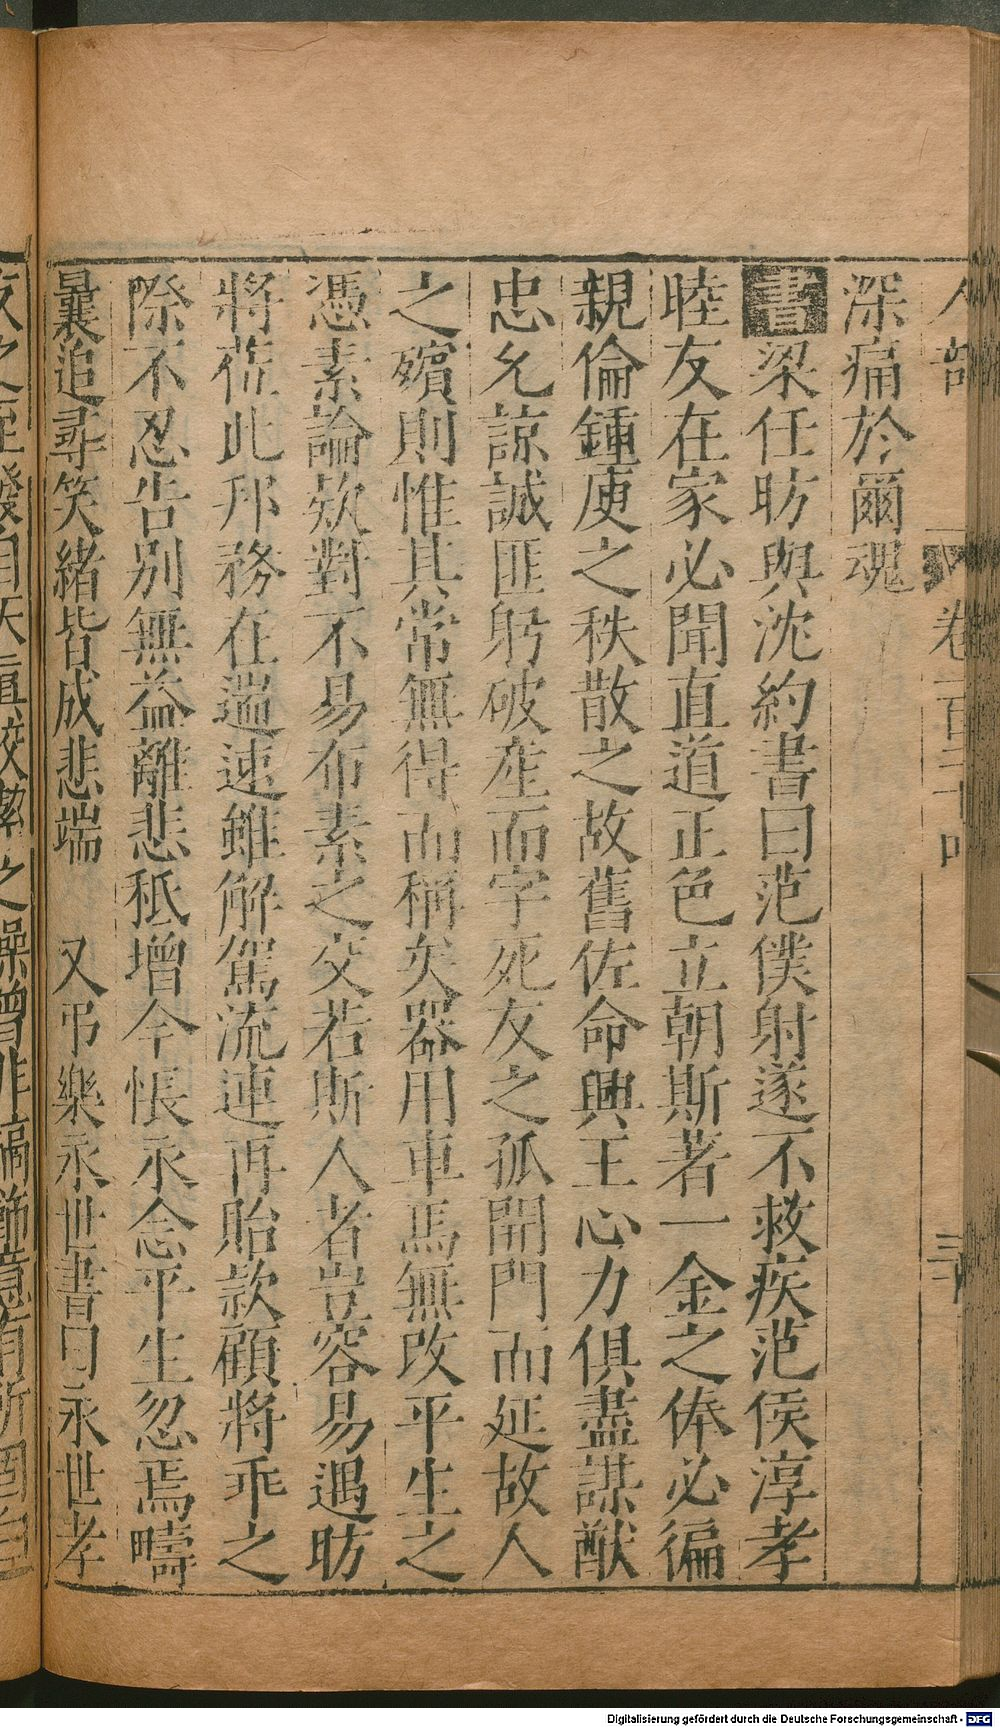 人部　卷三百二十四　三十
深痛於爾魂
書梁任昉與沈約書曰范僕射遂不救疾范侯淳孝
睦友在家必聞直道正色立朝斯著一金之俸必徧
親倫鍾庾之秩散之故舊佐命興王心力俱盡謀猷
忠允諒誠匪躬破産而字死友之孤開門而延故人
之殯則惟其常無得而稱矣器用車馬無改平生之
憑素論欵對不易布素之交若斯人者豈容易遇昉
將莅此邦務在遄速雖解駕流連再貽款顧將乖之
際不忍告別無益離悲秖增今悵永念平生忽焉疇
曩追尋笑緒皆成悲端　又弔樂永世書曰永世孝
友之至發自天
之操曾非
意有所固
Digitalisierung gefördert durch die Deutsche Forschungsgemeinschaft - DFG